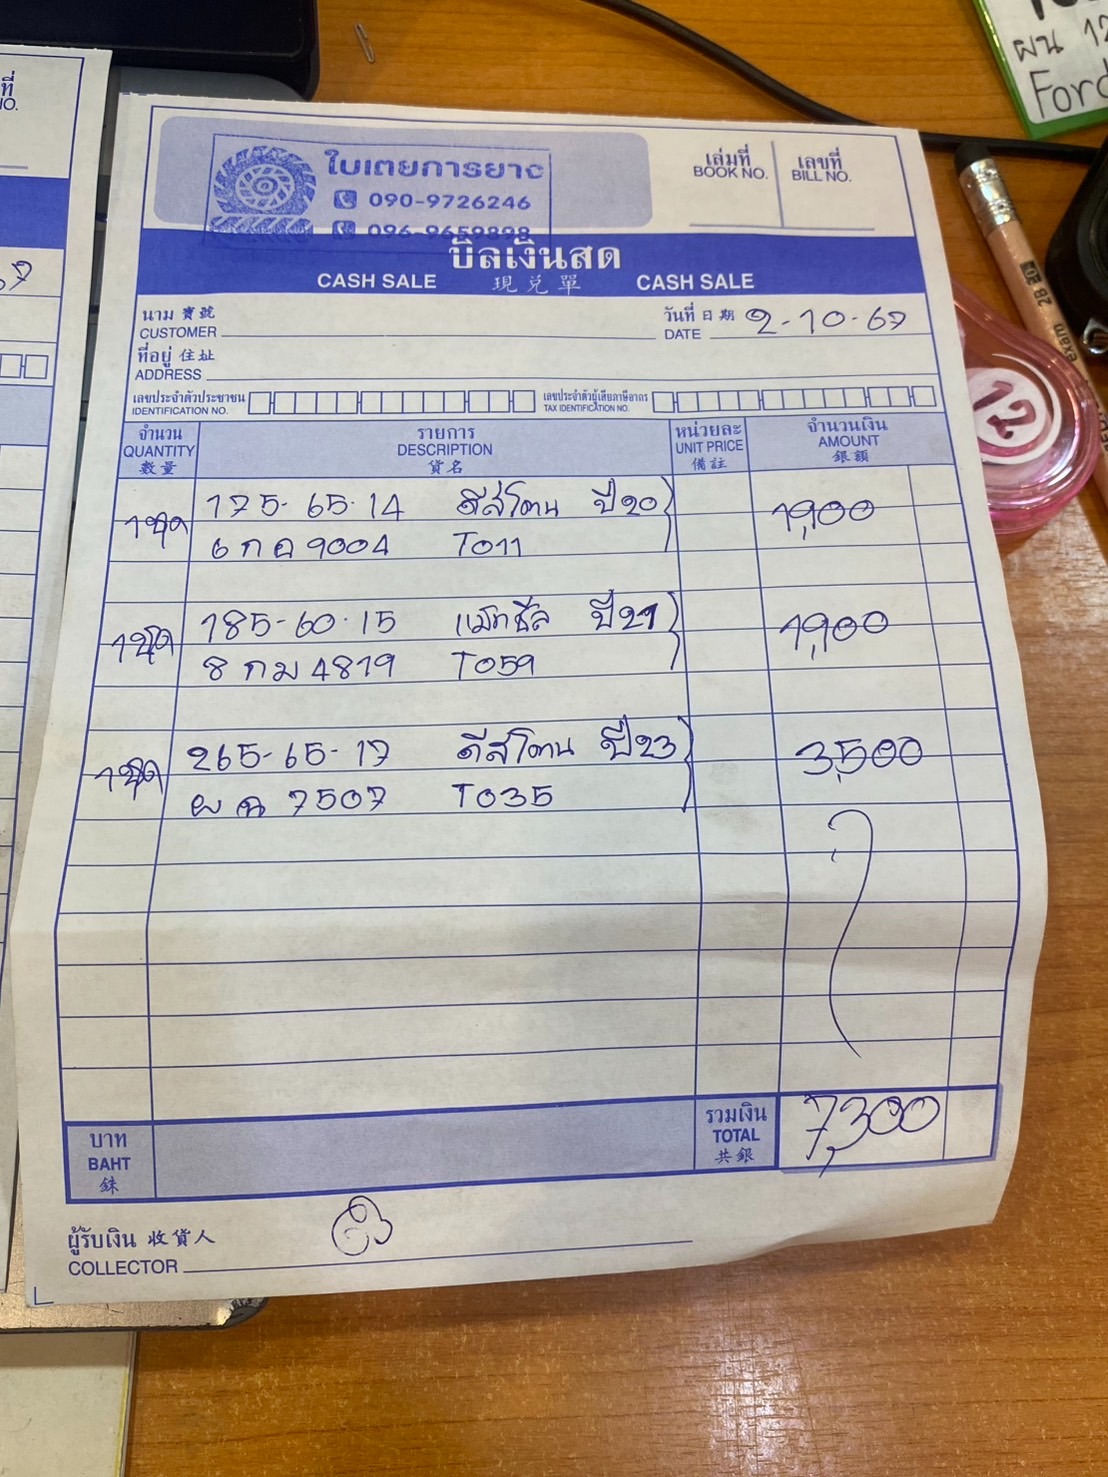 ที่
NO.
67
ผน 12
Ford
ใบเตยการยาง
090-9726246
096-9659898
เล่มที่
BOOK NO.
เลขที่
BILL NO.
บิลเงินสด
CASH SALE 現兌單 CASH SALE
นาม 寶號
CUSTOMER
วันที่ 日期 2-10-67
DATE
ที่อยู่ 住址
ADDRESS
เลขประจำตัวประชาชน
IDENTIFICATION NO.
เลขประจำตัวผู้เสียภาษีอากร
TAX IDENTIFICATION NO.
จำนวน
QUANTITY
數量
รายการ
DESCRIPTION
貨名
หน่วยละ
UNIT PRICE
備註
จำนวนเงิน
AMOUNT
銀額
1ชุด 175-65-14 ดีสโตน ปี20 1,900
6 กฉ 9004 T011
1ชุด 185-60-15 แม็กซีส ปี21 1,900
8 กม 4819 T059
1ชุด 265-65-17 ดีสโตน ปี23 3,500
ผฉ 7507 T035
บาท
BAHT
銖
รวมเงิน
TOTAL
共銀
7,300
ผู้รับเงิน 收貨人
COLLECTOR
2B
exam